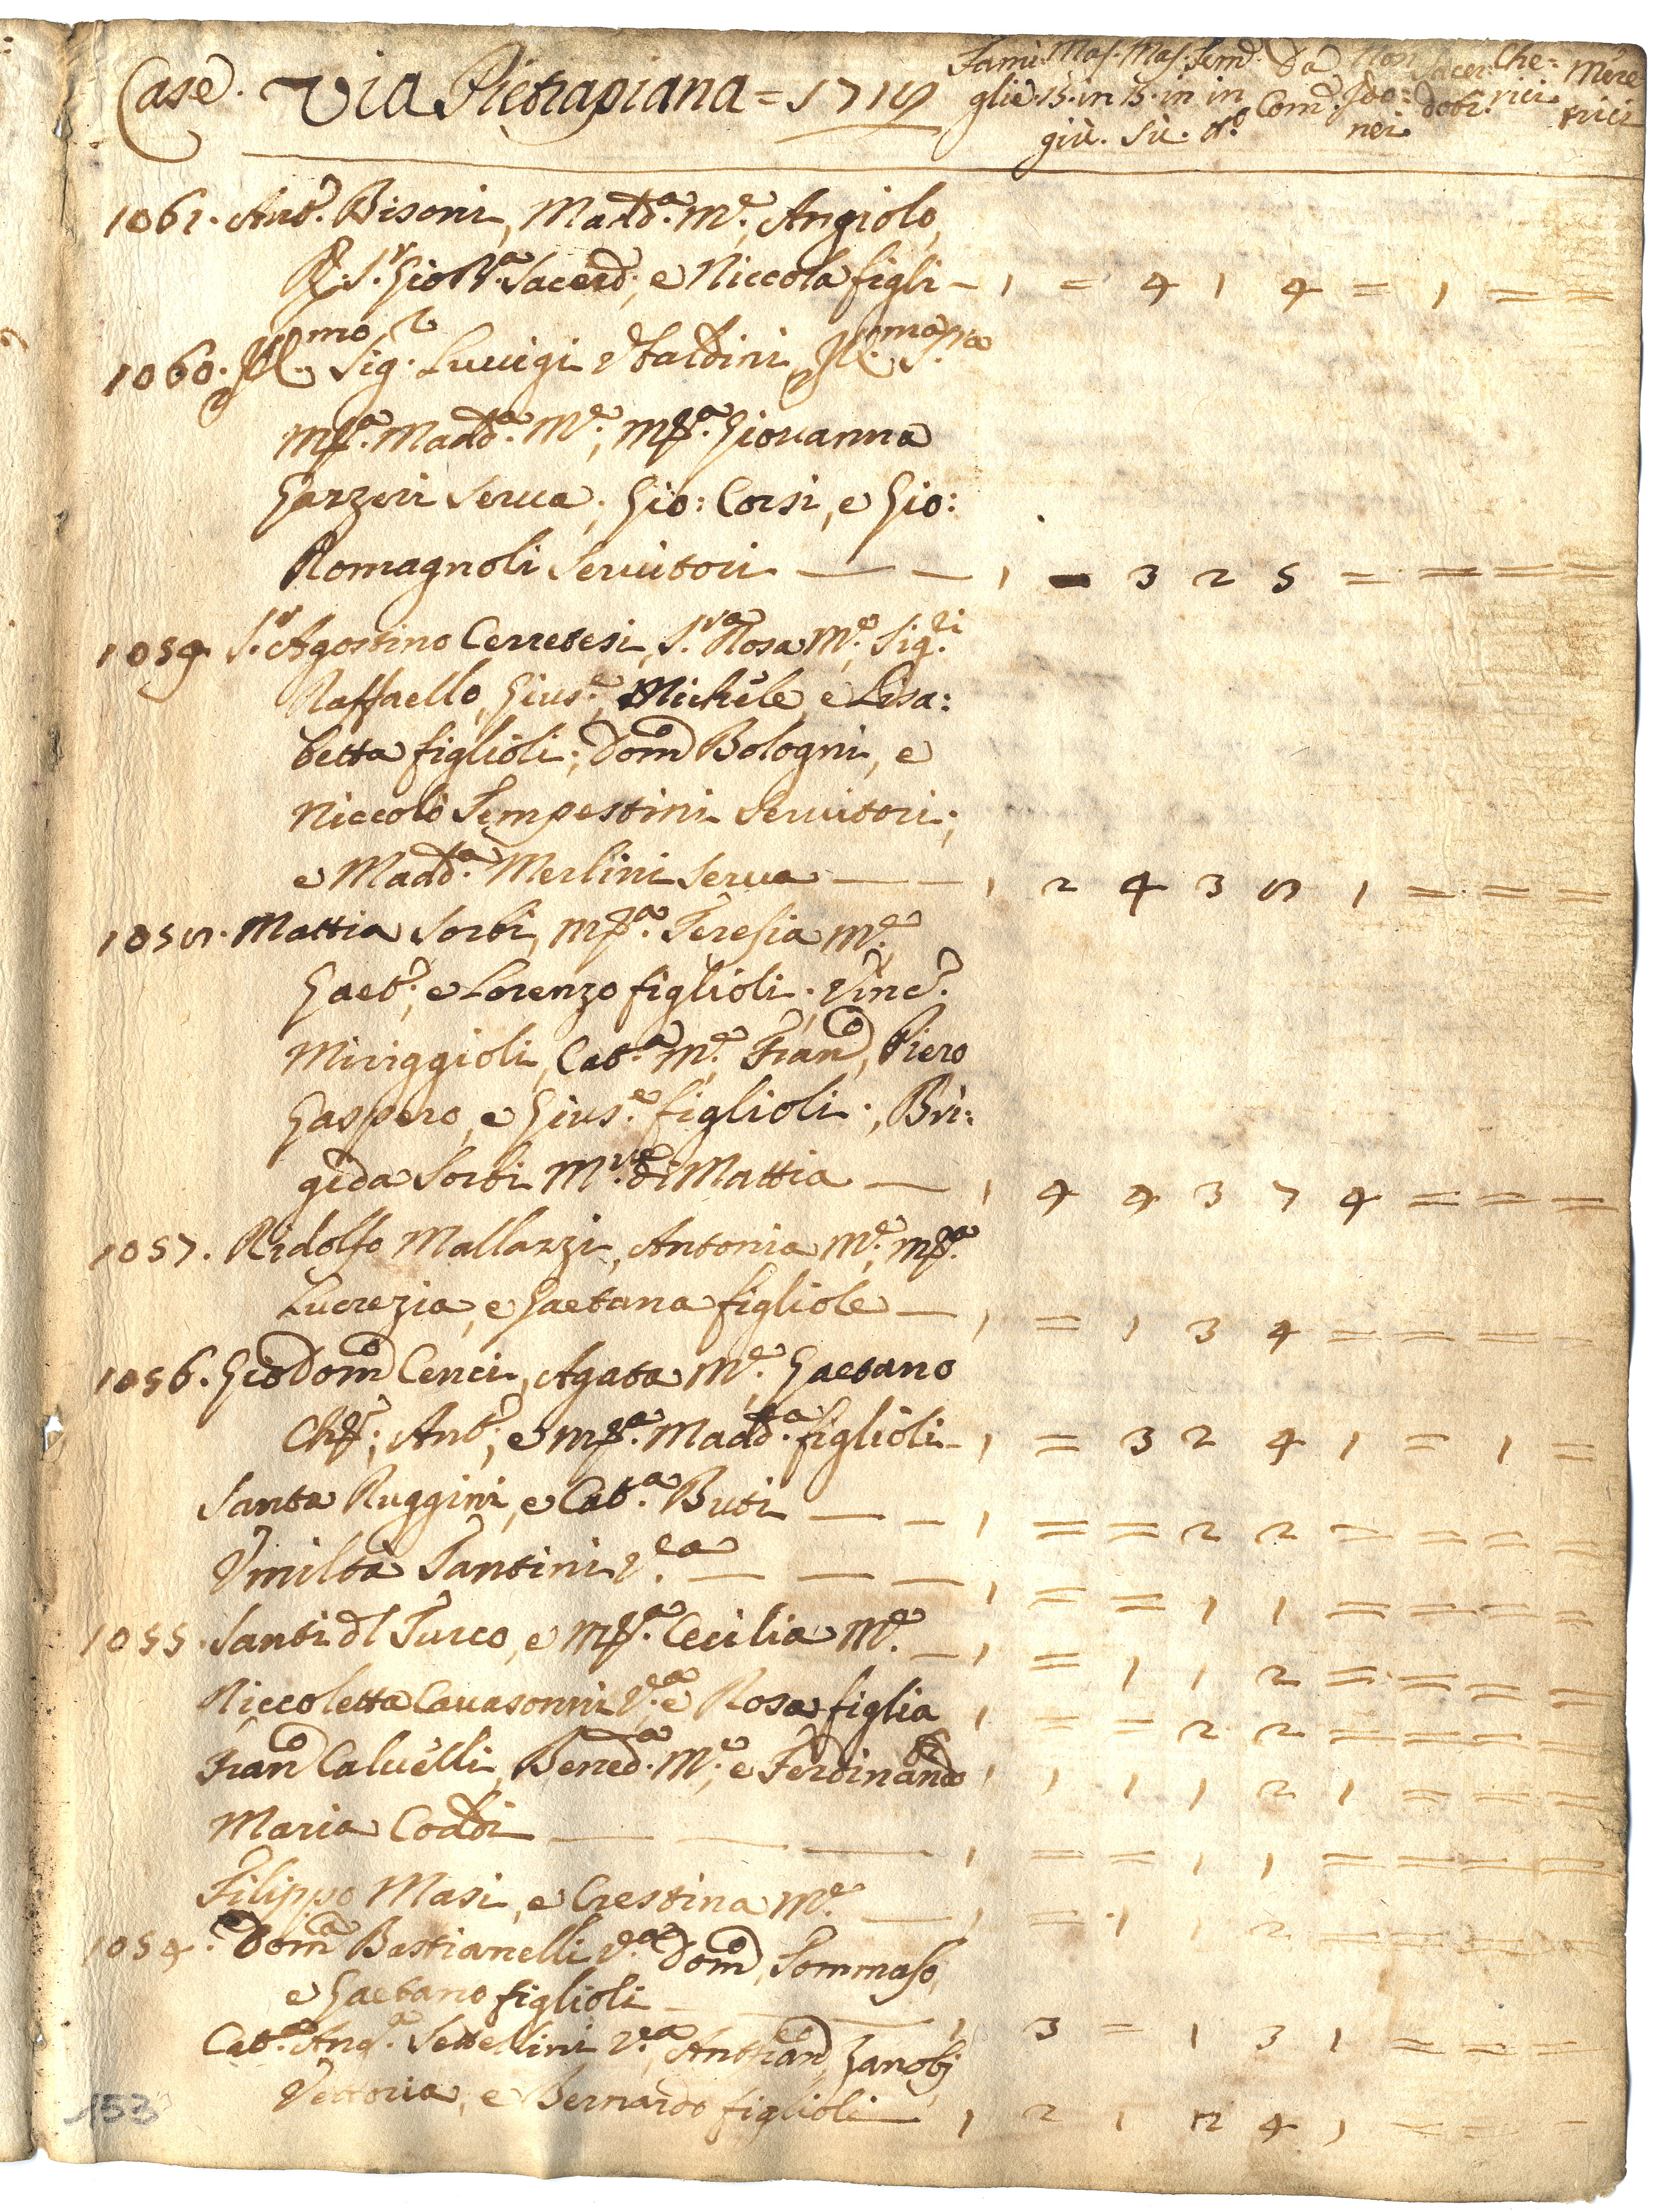 Case. Via Pietrapiana = 1719
Fami: Mas. Mas. Fem. Da Non Sacer: Che= Mere
glie 15. in 15. in in Com. Ido: doti. rici trici
giù. Sù. nei.
1061. Ant.º Bisoni, Madd.ª M.e, Angiolo,
R. S.r Gio B.ª Sacerd., e Niccola figli - 1 = 4 1 4 = 1 = =
1060. Ill.mo Sig.r Luuigi Vbaldini, Ill.ma S.ra
Mª. Madd.ª M.e; Mª. Giouanna
Garzeri Serua; Gio: Corsi, e Gio:
Romagnoli Seruitori — — 1 = 3 2 5 = = = =
1059 S.r Agostino Cerretesi, S.ra Rosa M.e, Sig.ri
Raffaello, Gius.e, Michele, e Lisa:
betta figlioli; Domº Bologni, e
Niccolò Tempestini Seruitori;
e Madd.ª Merlini Serua — — 1 2 4 3 8 1 = = =
1058. Mattia Sorbi, Mª. Teresia M.e
Gaet.º, e Lorenzo figlioli; Vinc.º
Miriggioli, Cat.ª M.e Franº, Piero
Gaspero, e Gius.e figlioli; Bri:
gida Sorbi M.re di Mattia — 1 4 4 3 7 4 = = =
1057. Ridolfo Mallazzi, Antonia M.e, Mª.
Lucrezia, e Gaetana figliole — 1 = 1 3 4 = = = =
1056. Gio Domº Cenci, Agata M.e, Gaetano
Ch.; Ant.º; e Mª. Madd.ª figlioli - 1 = 3 2 4 1 = 1 =
Santa Ruggini, e Cat.ª Buti — — 1 = = 2 2 = = = =
Vmiltà Santini V.ea — — — 1 = = 1 1 = = = =
1055. Santi dl Turco, e Mª. Cecilia M.e — 1 = 1 1 2 = = = =
Niccoletta Cauasonni V.ea e Rosa figlia 1 = = 2 2 = = = =
Franº Caluelli, Bened.ª M.e, e Ferdinando 1 1 1 1 2 1 = = =
Maria Coddi — — — 1 = = 1 1 = = = =
Filippo Masi, e Crestina M.e — 1 = 1 1 2 = = = =
1054. Domª Bastianelli V.ea Domº, Tommaso,
e Gaetano figlioli — — 1 3 = 1 3 1 = = =
Cat.ª Ang.ª Settellini V.ea, Ant Franº, Zanobj
Vettoria, e Bernardo figlioli — 1 2 1 2 4 1 = = =
153